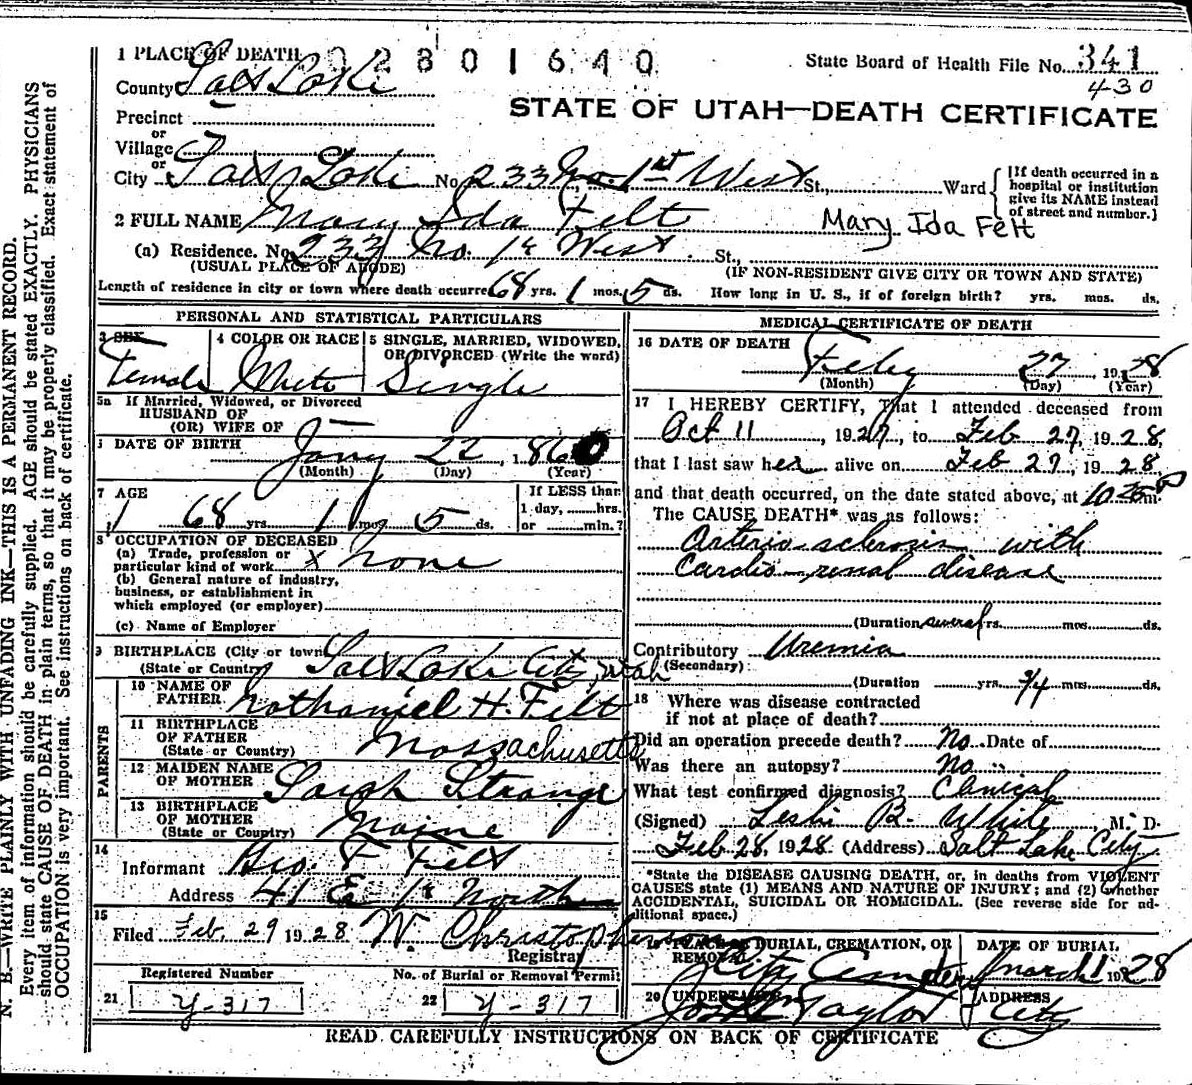 1 PLACE OF DEATH 02801640 State Board of Health File No. 341
County Salt Lake 430
STATE OF UTAH—DEATH CERTIFICATE
Precinct
or
Village
or
City Salt Lake No. 233 No. 1st West St., Ward
[If death occurred in a
hospital or institution
give its NAME instead
of street and number.]
2 FULL NAME Mary Ida Felt Mary Ida Felt
(a) Residence. No. 233 No. 1st West St.,
(USUAL PLACE OF ABODE) (IF NON-RESIDENT GIVE CITY OR TOWN AND STATE)
Length of residence in city or town where death occurred 68 yrs. 1 mos. 5 ds. How long in U. S., if of foreign birth? yrs. mos. ds.
PERSONAL AND STATISTICAL PARTICULARS
3 SEX 4 COLOR OR RACE 5 SINGLE, MARRIED, WIDOWED,
OR DIVORCED (Write the word)
Female White Single
5a If Married, Widowed, or Divorced
HUSBAND OF
(OR) WIFE OF
DATE OF BIRTH Jany 22, 1860
(Month) (Day) (Year)
7 AGE If LESS than
1 day, hrs.
68 yrs. 1 mos. 5 ds. or min.?
8 OCCUPATION OF DECEASED
(a) Trade, profession or
particular kind of work x none
(b) General nature of industry,
business, or establishment in
which employed (or employer)
(c) Name of Employer
9 BIRTHPLACE (City or town) Salt Lake City, Utah
(State or Country)
PARENTS
10 NAME OF
FATHER Nathaniel H. Felt
11 BIRTHPLACE
OF FATHER
(State or Country) Massachusetts
12 MAIDEN NAME
OF MOTHER Sarah Strange
13 BIRTHPLACE
OF MOTHER
(State or Country) Maine
14
Informant Geo. F Felt
Address 41 E 1st North
15
Filed Feb. 29 1928 W. Christopherson
Registrar
Registered Number No. of Burial or Removal Permit
21 Y-317 22 Y-317
MEDICAL CERTIFICATE OF DEATH
16 DATE OF DEATH
Feby 27, 1928
(Month) (Day) (Year)
17 I HEREBY CERTIFY, That I attended deceased from
Oct 11, 1927, to Feb 27, 1928,
that I last saw her alive on Feb 27, 1928,
and that death occurred, on the date stated above, at 10
The CAUSE DEATH* was as follows:
Arterio-sclerosis with
Cardio-renal disease
(Duration several yrs. mos. ds.
Contributory Uremia
(Secondary)
(Duration yrs. 3/4 mos. ds.
18 Where was disease contracted
if not at place of death?
Did an operation precede death? No. Date of
Was there an autopsy? No
What test confirmed diagnosis? Clinical
(Signed) Leslie B. White, M. D.
Feb 28, 1928. (Address) Salt Lake City
*State the DISEASE CAUSING DEATH, or, in deaths from VIOLENT
CAUSES state (1) MEANS AND NATURE OF INJURY; and (2) whether
ACCIDENTAL, SUICIDAL OR HOMICIDAL. (See reverse side for ad-
ditional space.)
19 PLACE OF BURIAL, CREMATION, OR DATE OF BURIAL
REMOVAL
City Cemetery March 1 1928
20 UNDERTAKER ADDRESS
Taylor City
READ CAREFULLY INSTRUCTIONS ON BACK OF CERTIFICATE
N. B.—WRITE PLAINLY WITH UNFADING INK—THIS IS A PERMANENT RECORD.
Every item of information should be carefully supplied. AGE should be stated EXACTLY. PHYSICIANS
should state CAUSE OF DEATH in plain terms, so that it may be properly classified. Exact statement of
OCCUPATION is very important. See instructions on back of certificate.